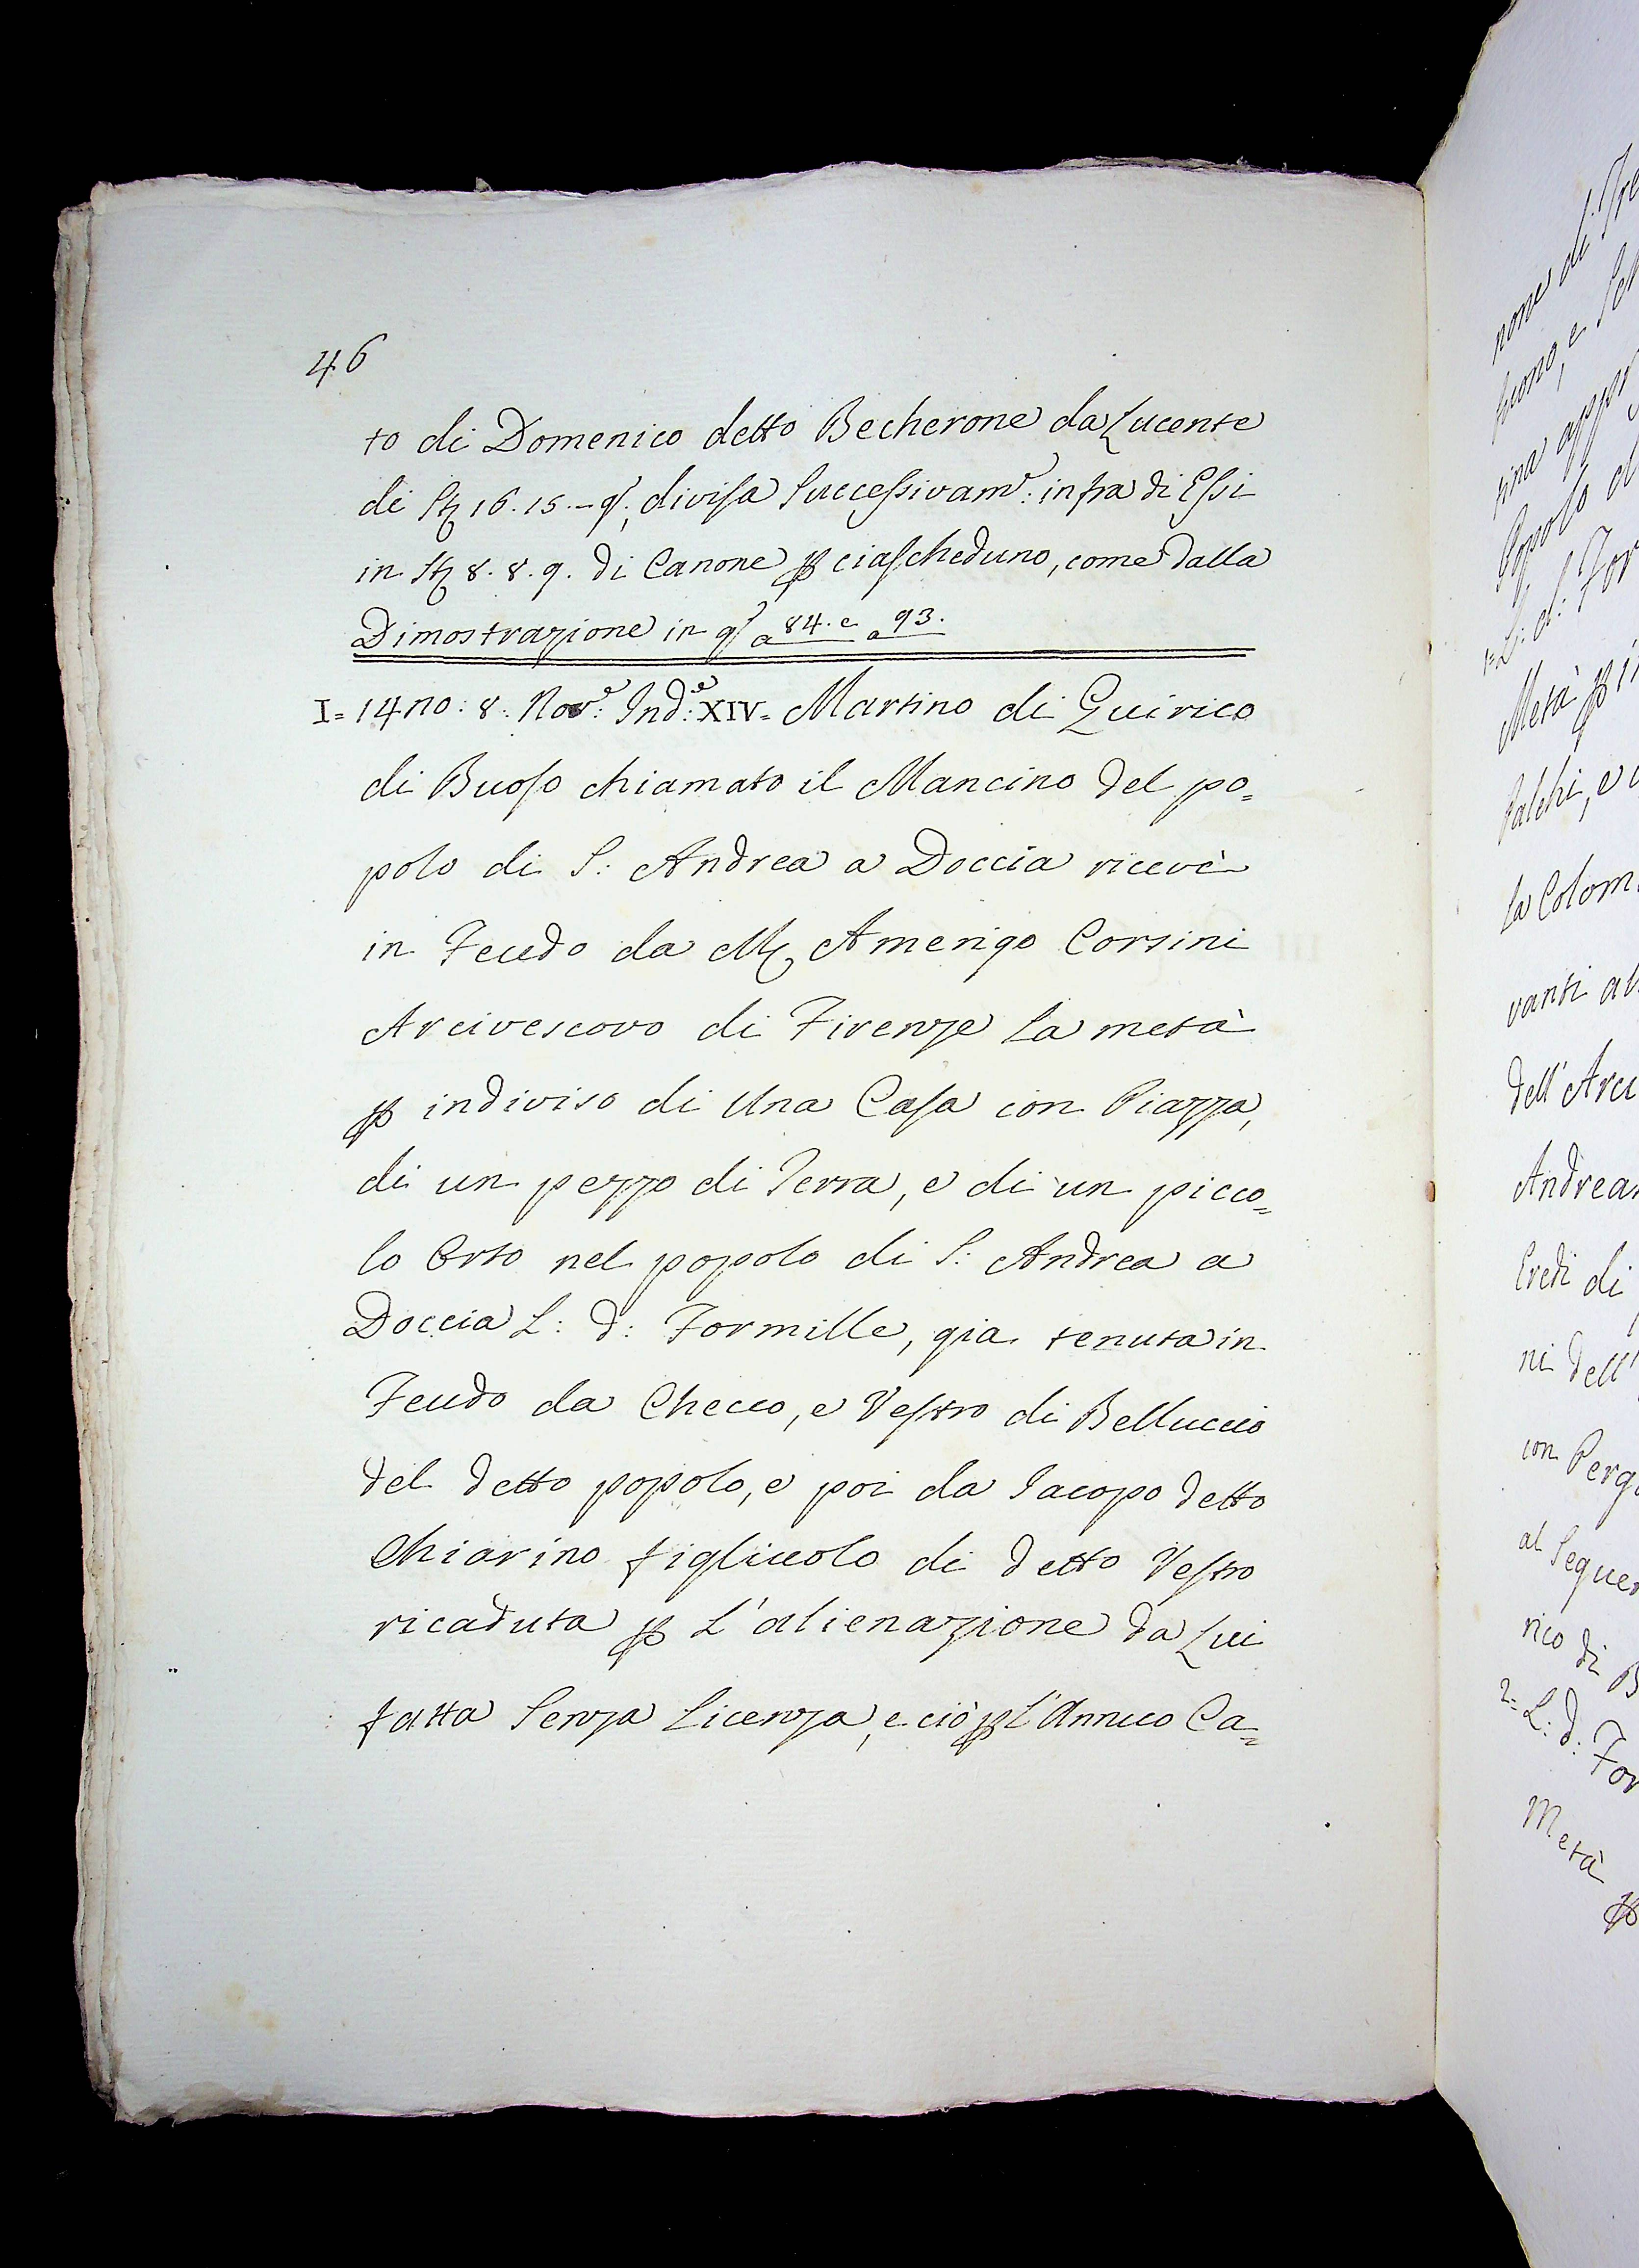 46
to di Domenico detto Becherone da Lucente
di St 16. 15.-q.ͭ, divisa Successivam.ͤ: infra di Essi
in St 8. 8. 9. di Canone ꝑ ciascheduno, come dalla
Dimostrazione in q.ͭ a 84. e a 93.
I= 14no: 8: Nov.ͤ: Ind.ͤ: XIV= Martino di Quirico
di Buoso chiamato il Mancino del po=
polo di S: Andrea a Doccia ricevè
in Feudo da M. Amerigo Corsini
Arcivescovo di Firenze la metà
ꝑ indiviso di Una Casa con Piazza,
di un pezzo di Terra, e di un picco=
lo Orto nel popolo di S: Andrea a
Doccia L: d: Formille, gia tenuta in
Feudo da Checco, e Vestro di Belluccio
del detto popolo, e poi da Iacopo detto
Chiarino figliuolo di detto Vestro
ricaduta ꝑ L'alienazione da Lui
fatta Senza Licenza, e ciò ꝑ L'Annuo Ca=
none di
sina
Popolo
1= L: d: For
Metà ꝑ in
Palchi, e
la Colom
vanti al
dell'Arci
Andrea
Eredi di
ni dell'
con Perg
al Seguen
rico di B
2= L: d: For
Metà ꝑ